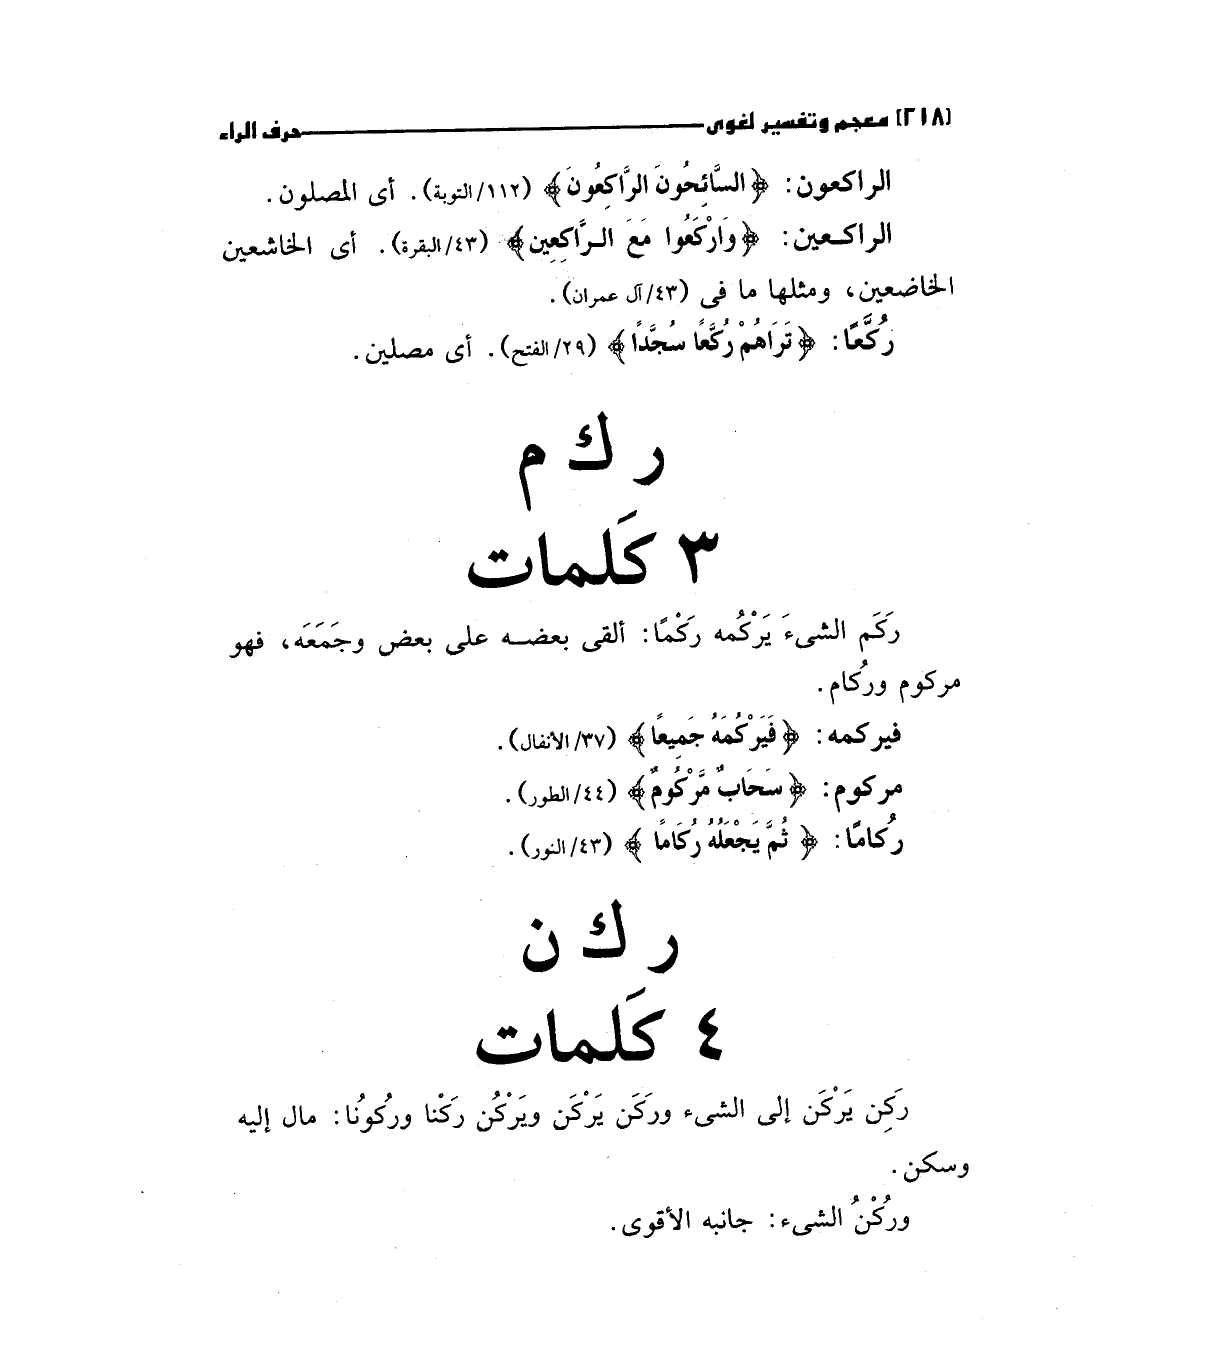 [٢١٨] معجم وتفسير لغوى ـــــــ حرف الراء
الراكعون: ﴿السَّائِحُونَ الرَّاكِعُونَ﴾ (١١٢/التوبة). أى المصلون.
الراكـعين: ﴿وَارْكَعُوا مَعَ الـرَّاكِعِين﴾ (٤٣/البقرة). أى الخاشعين
الخاضعين، ومثلها ما فى (٤٣/آل عمران).
رُكَّعًا: ﴿تَرَاهُمْ رُكَّعًا سُجَّدًا﴾ (٢٩/الفتح). أى مصلين.
ر ك م
٣ كَلمات
رَكَم الشىءَ يَرْكُمه رَكْمًا: ألقى بعضـــه على بعض وجَمَعَه، فهو
مركوم ورُكام.
فيركمه: ﴿فَيَرْكُمَهُ جَمِيعًا﴾ (٣٧/الأنفال).
مركوم: ﴿سَحَابٌ مَّرْكُومٌ﴾ (٤٤/الطور).
رُكامًا: ﴿ثُمَّ يَجْعَلُهُ رُكَامًا﴾ (٤٣/النور).
ر ك ن
٤ كَلمات
رَكِن يَرْكَن إلى الشىء وركَن يَرْكَن ويَرْكُن ركْنا ورُكونُا: مال إليه
وسكن.
ورُكْنُ الشىء: جانبه الأقوى.